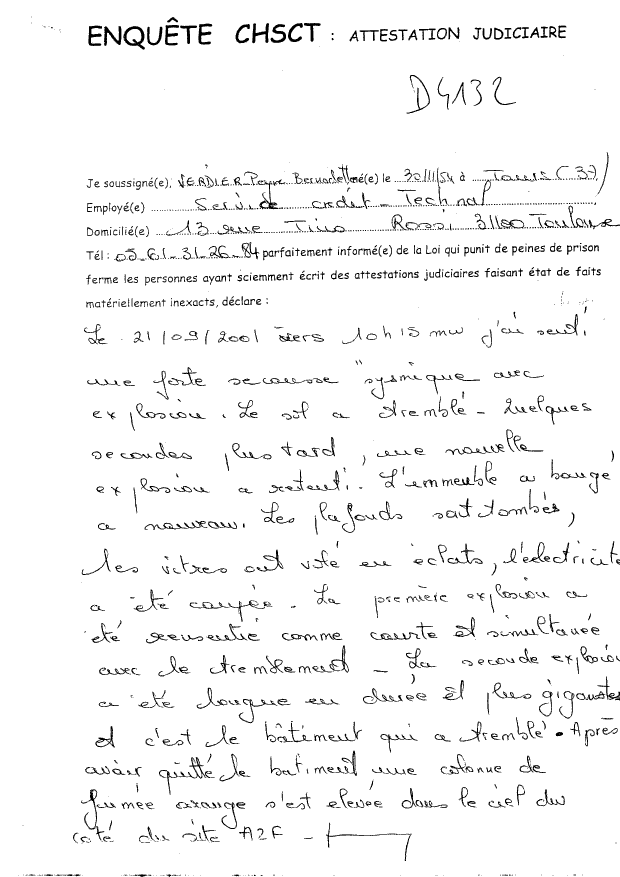 ENQUÊTE CHSCT : ATTESTATION JUDICIAIRE
D4132
Je soussigné(e), VERDIER-Peyre Bernadette né(e) le 30/11/54 à Tours (37)
Employé(e) Service crédit - Technal
Domicilié(e) 13 rue Tino Rossi 31100 Toulouse
Tél : 05-61-31-26-84 parfaitement informé(e) de la Loi qui punit de peines de prison
ferme les personnes ayant sciemment écrit des attestations judiciaires faisant état de faits
matériellement inexacts, déclare :
Le 21/09/2001 vers 10h15 mn j'ai senti
une forte secousse "sysmique avec
explosion. Le sol a tremblé - Quelques
secondes plus tard, une nouvelle
explosion a retenti. L'immeuble a bougé
a nouveau. Les plafonds sont tombés,
les vitres ont volé en éclats, l'électricité
a été coupée. La première explosion a
été ressentie comme courte et simultanée
avec le tremblement - La seconde explosion
a été longue en durée et plus gigantesque
et c'est le bâtiment qui a tremblé. Après
avoir quitté le batiment une colonne de
fumée orange s'est elevée dans le ciel du
coté du site AZF -